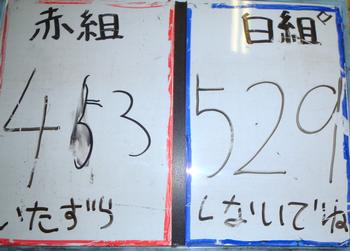 赤組
463
いたずら
白組
529
しないでね